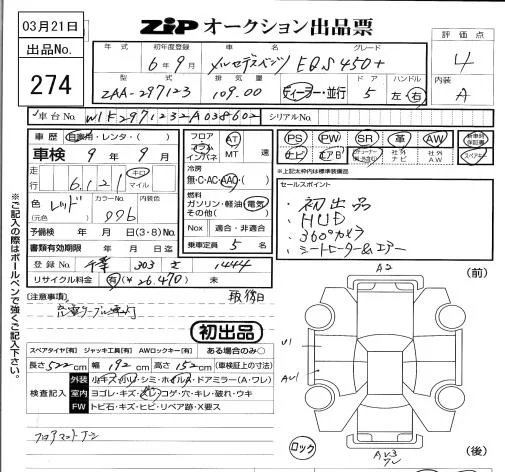 03月21日
ZIP オークション出品票
出品No.
274
年式 初年度登録 車名 グレード
6年9月 メルセデスベンツ EQS 450+
型式 排気量 ドア ハンドル
ZAA-297123 109.00 ディーラー・並行 5 左・右
評価点
4
内装
A
車台No. W1K2971232A038602 シリアルNo.
車歴 自家用・レンタ・( )
車検 9年9月
走行 6,121 キロ マイル
色 レッド カラーNo. 996 内装色
(元色)
予備検 年 月 日(3・8)No.
書類有効期限 年 月 日迄
登録No. 千葉 303 1444
リサイクル料金 有(¥26.470) 未
フロア インパネ AT MT 速
冷房
無・C・AC・AAC・( )
燃料
ガソリン・軽油・電気
その他( )
Nox 適合・非適合
乗車定員 5 名
PS PW SR 革 AW 新車時保証書
ナビ エアB 社外ナビ 社外AW スペアキー
*上記太枠内は標準装備品
セールスポイント
・初出品
・HUD
・360°カメラ
・シートヒーター&エアー
(注意事項)
充電ケーブル
初出品
スペアタイヤ[有] ジャッキ工具[有] AWロックキー[有] ある場合のみ○
長さ 522 cm 幅 192 cm 高さ 152 cm (車検証上の寸法)
検査記入
外装 小キズ・小凹・シミ・ホイルA・ドアミラー(A・ワレ)
室内 ヨゴレ・キズ・スレ・コゲ・穴・キレ・破れ・ウキ
FW トビ石・キズ・ヒビ・リペア跡・X要ス
フロアマットナシ
※ご記入の際はボールペンで強くご記入下さい。
A2
(前)
U1
AU1
ロック
(後)